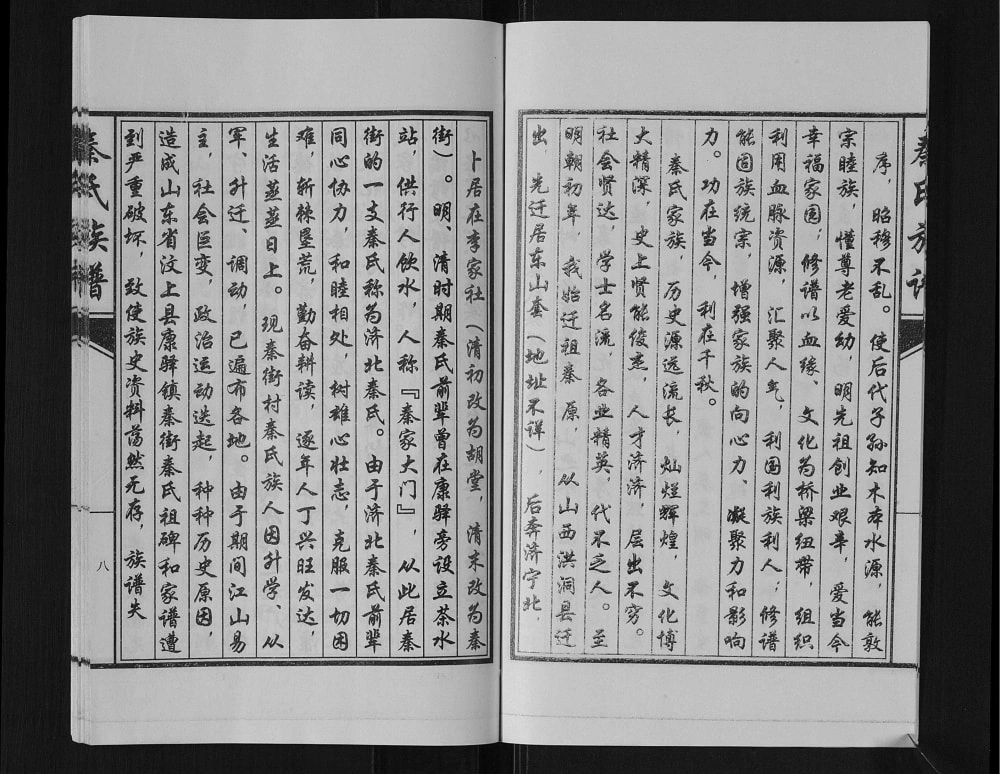 秦氏族谱
序，昭穆不乱。使后代子孙知木本水源，能敦
宗睦族，懂尊老爱幼，明先祖创业艰辛，爱当今
幸福家园；修谱以血缘、文化为桥梁纽带，组织
利用血脉资源，汇聚人气，利国利族利人；修谱
能固族统宗，增强家族的向心力、凝聚力和影响
力。功在当今，利在千秋。
秦氏家族，历史源远流长，灿烂辉煌，文化博
大精深，史上贤能俊杰，人才济济，层出不穷。
社会贤达，学士名流，各业精英，代不乏人。至
明朝初年，我始迁祖秦原，从山西洪洞县迁
出，先迁居东山套（地址不详），后奔济宁北，
卜居在李家社（清初改为胡堂，清末改为秦
街）。明、清时期秦氏前辈曾在康驿旁设立茶水
站，供行人饮水，人称『秦家大门』，从此居秦
街的一支秦氏称为济北秦氏。由于济北秦氏前辈
同心协力，和睦相处，树雄心壮志，克服一切困
难，斩棘垦荒，勤奋耕读，逐年人丁兴旺发达，
生活蒸蒸日上。现秦街村秦氏族人因升学、从
军、升迁、调动，已遍布各地。由于期间江山易
主，社会巨变，政治运动迭起，种种历史原因，
造成山东省汶上县康驿镇秦街秦氏祖碑和家谱遭
到严重破坏，致使族史资料荡然无存，族谱失
秦氏族谱
八